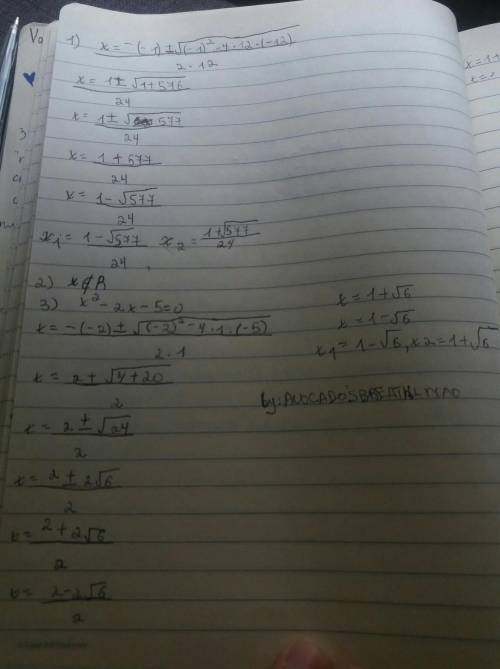 Va
1) x = -(-1) ± √(-1)² - 4 · 12 · (-12)
2 · 12
x = 1 ± √1 + 576
24
x = 1 ± √577
24
x = 1 + 577
24
x = 1 - √577
24
x₁ = 1 - √577 x₂ = 1 + √577
24 , 24
2) x ∉ R
3) x² - 2x - 5 = 0
x = -(-2) ± √(-2)² - 4 · 1 · (-5)
2 · 1
x = 2 ± √4 + 20
2
x = 2 ± √24
2
x = 2 ± 2√6
2
x = 2 + 2√6
2
x = 2 - 2√6
2
x = 1 + √6
x = 1 - √6
x₁ = 1 - √6, x2 = 1 + √6